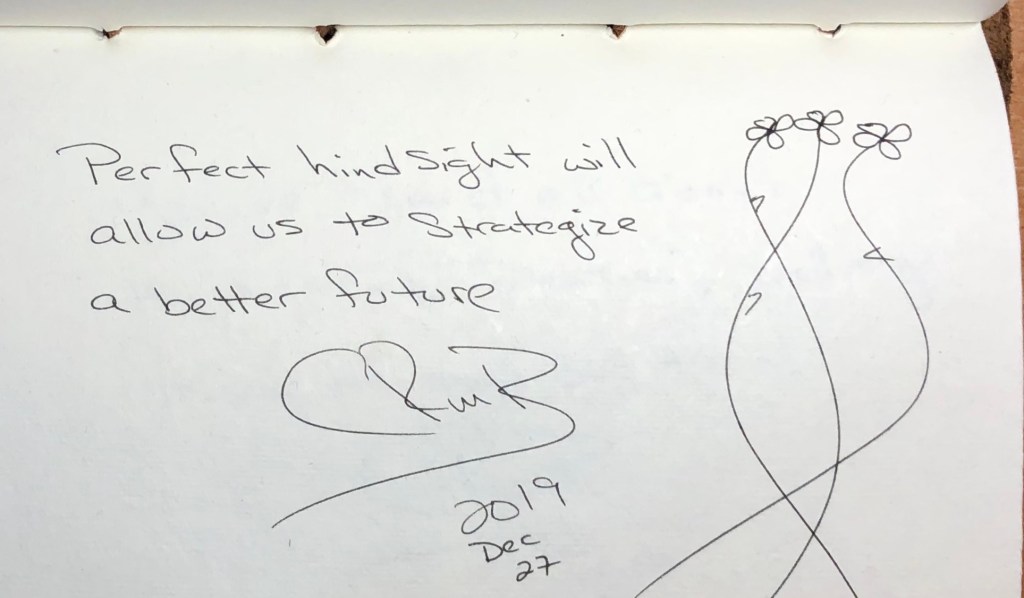 Perfect hindsight will
allow us to strategize
a better future
2019
Dec
27